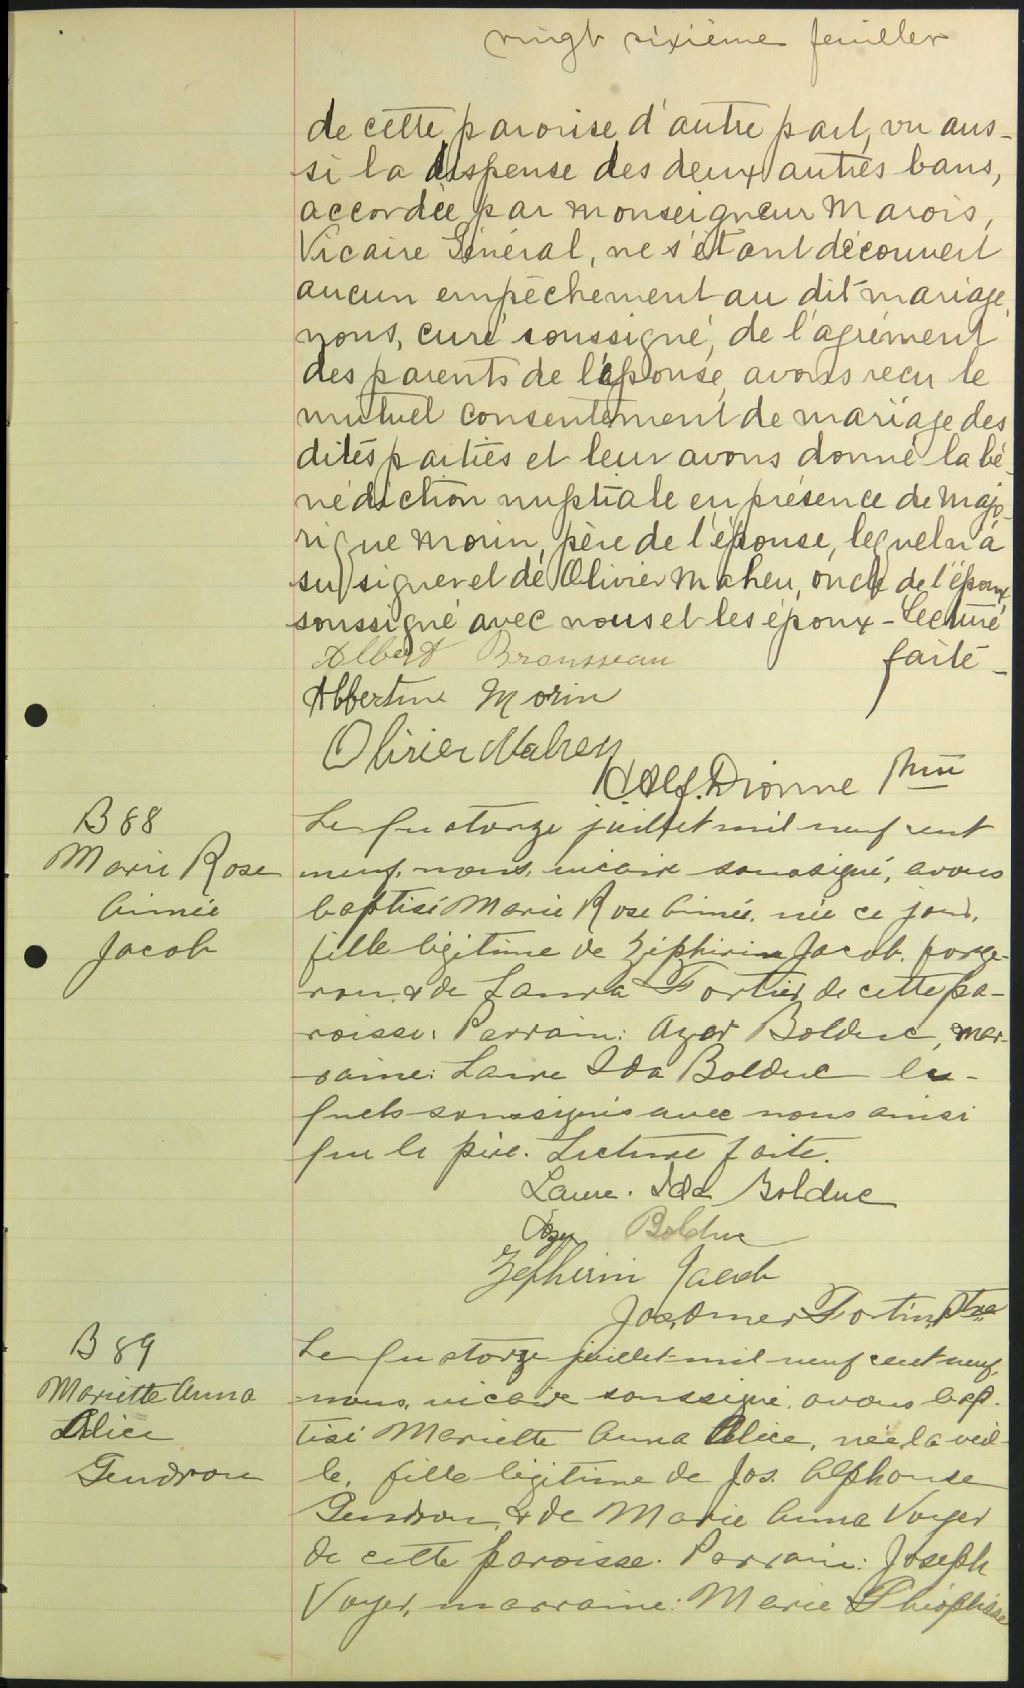 vingt sixième feuillet
de cette paroisse d'autre part, vu aus-
si la dispense des deux autres bans,
accordée par Monseigneur Marois,
Vicaire Général, ne s'étant découvert
aucun empêchement au dit mariage,
nous, curé soussigné, de l'agrément
des parents de l'épouse, avons reçu le
mutuel consentement de mariage des
dites parties et leur avons donné la bé-
nédiction nuptiale en présence de Majo-
rique Morin, père de l'épouse, lequel n'a
su signer et de Olivier Maheu, oncle de l'époux
soussigné avec nous et les époux - Lecture
faite -
Albert Brousseau
Albertine Morin
Olivier Maheu
Alf. Dionne Ptre
B 88
Marie Rose
Aimée
Jacob
Le quatorze juillet mil neuf cent
neuf, nous, vicaire soussigné, avons
baptisé Marie Rose Aimée, née ce jour,
fille légitime de Zéphirin Jacob, forge-
ron, & de Laura Fortier de cette pa-
roisse. Parrain: Azar Bolduc, mar-
raine: Laure Ida Bolduc les-
quels soussignés avec nous ainsi
que le père. Lecture faite.
Laure. Ida Bolduc
Bolduc
Zephirin Jacob
Jos. Omer Fortin, Ptre
B 89
Mariette Anna
Alice
Gendron
Le quatorze juillet mil neuf cent neuf,
nous, vicaire soussigné, avons bap-
tisé Mariette Anna Alice, née la veil-
le, fille légitime de Jos. Alphonse
Gendron, & de Marie Anna Voyer
de cette paroisse. Parrain: Joseph
Voyer, marraine: Marie Théophisse